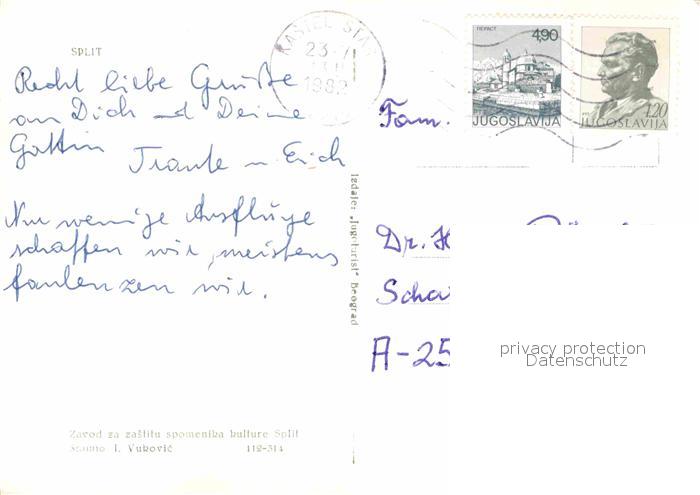 SPLIT
Recht liebe Grüße
an Dich und Deine
Gattin Traute u. Erich
Nur wenige Ausflüge
schaffen wir, meistens
faulenzen wir.
Zavod za zaštitu spomenika kulture Split
Snimio I. Vuković 112-314
Izdaje: „Jugoturist" Beograd
KAŠTEL STARI
23.
1982
ПЕРАСТ
4,90
JUGOSLAVIJA
1.20
JUGOSLAVIJA
Fam.
Dr. H
Scha
A-25
privacy protection
Datenschutz